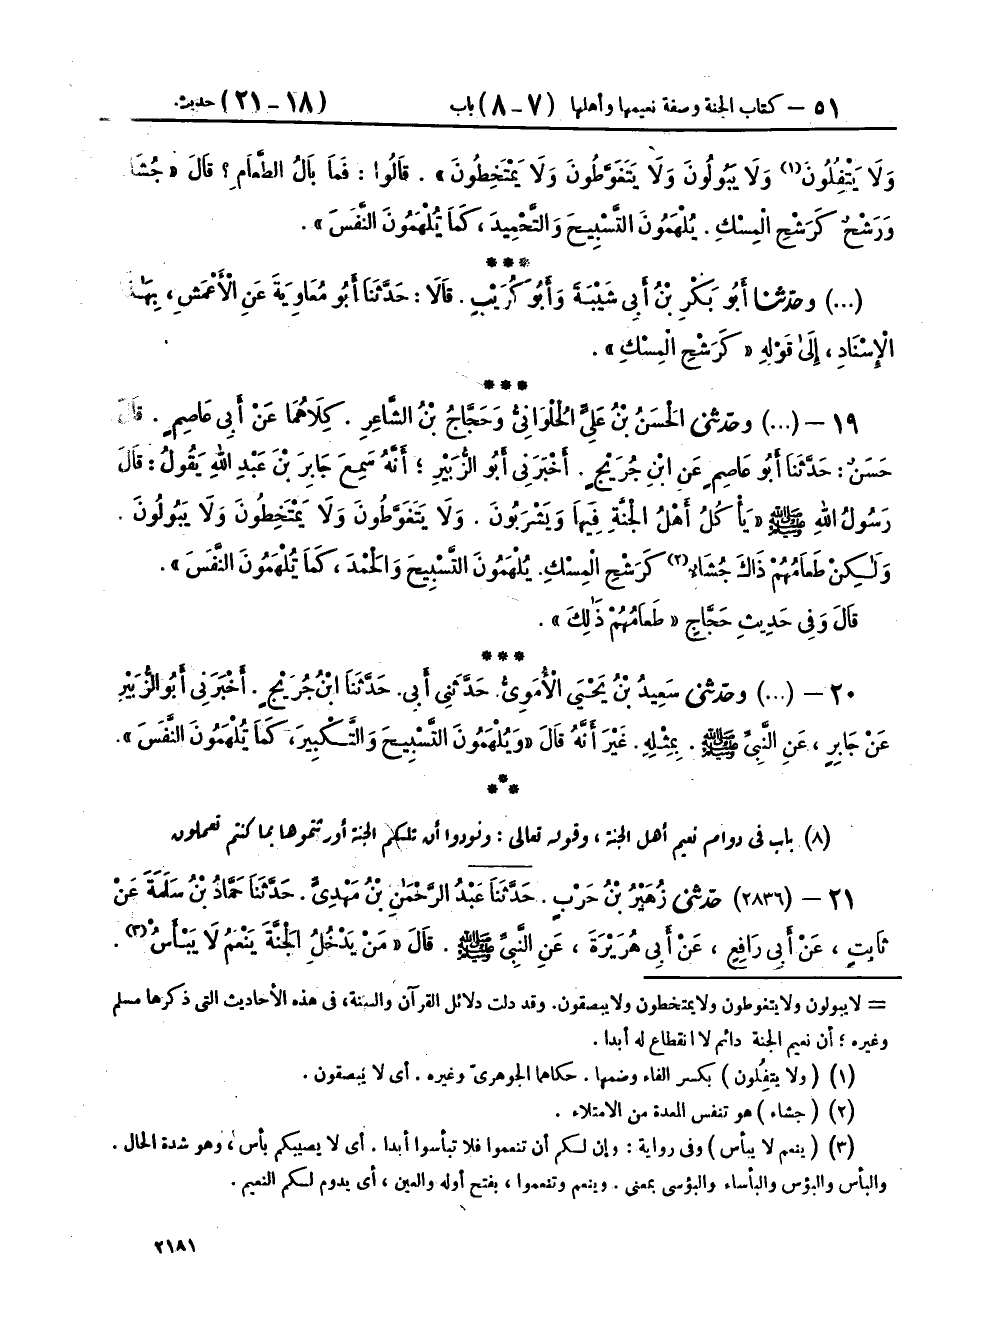 ٥١ – كتاب الجنة وصفة نعيمها وأهلها (٧ – ٨) باب (١٨ – ٢١) حديث.
وَلَا يَتْفِلُونَ(١) وَلَا يَبُولُونَ وَلَا يَتَغَوَّطُونَ وَلَا يَمْتَخِطُونَ» . قَالُوا : فَمَا بَالُ الطَّعَامِ ؟ قَالَ «جُشَاءٌ
وَرَشْحٌ كَرَشْحِ الْمِسْكِ . يُلْهَمُونَ التَّسْبِيحَ وَالتَّحْمِيدَ ، كَمَا يُلْهَمُونَ النَّفَسَ» .
***
(...) وحَدَّثَنَا أَبُو بَكْرِ بْنُ أَبِي شَيْبَةَ وَأَبُو كُرَيْبٍ . قَالَا : حَدَّثَنَا أَبُو مُعَاوِيَةَ عَنِ الْأَعْمَشِ ، بِهَذَا
الْإِسْنَادِ ، إِلَىٰ قَوْلِهِ «كَرَشْحِ الْمِسْكِ» .
***
١٩ – (...) وحَدَّثَنِي الْحَسَنُ بْنُ عَلِيٍّ الْحُلْوَانِيُّ وَحَجَّاجُ بْنُ الشَّاعِرِ . كِلَاهُمَا عَنْ أَبِي عَاصِمٍ . قَالَ
حَسَنٌ : حَدَّثَنَا أَبُو عَاصِمٍ عَنِ ابْنِ جُرَيْجٍ . أَخْبَرَنِي أَبُو الزُّبَيْرِ ؛ أَنَّهُ سَمِعَ جَابِرَ بْنَ عَبْدِ اللهِ يَقُولُ : قَالَ
رَسُولُ اللهِ ﷺ «يَأْكُلُ أَهْلُ الْجَنَّةِ فِيهَا وَيَشْرَبُونَ . وَلَا يَتَغَوَّطُونَ وَلَا يَمْتَخِطُونَ وَلَا يَبُولُونَ .
وَلَٰكِنْ طَعَامُهُمْ ذَاكَ جُشَاءٌ(٢) كَرَشْحِ الْمِسْكِ. يُلْهَمُونَ التَّسْبِيحَ وَالْحَمْدَ ، كَمَا يُلْهَمُونَ النَّفَسَ» .
قَالَ وَفِي حَدِيثِ حَجَّاجٍ «طَعَامُهُمْ ذَٰلِكَ» .
***
٢٠ – (...) وحَدَّثَنِي سَعِيدُ بْنُ يَحْيَى الْأُمَوِيُّ. حَدَّثَنِي أَبِي. حَدَّثَنَا ابْنُ جُرَيْجٍ . أَخْبَرَنِي أَبُو الزُّبَيْرِ
عَنْ جَابِرٍ ، عَنِ النَّبِيِّ ﷺ . بِمِثْلِهِ . غَيْرَ أَنَّهُ قَالَ «وَيُلْهَمُونَ التَّسْبِيحَ وَالتَّكْبِيرَ، كَمَا يُلْهَمُونَ النَّفَسَ» .
***
(٨) باب فى دوام نعيم أهل الجنة ، وقوله تعالى : ونودوا أن تلكم الجنة أورثتموها بما كنتم تعملون
٢١ – (٢٨٣٦) حَدَّثَنِي زُهَيْرُ بْنُ حَرْبٍ . حَدَّثَنَا عَبْدُ الرَّحْمَٰنِ بْنُ مَهْدِيٍّ . حَدَّثَنَا حَمَّادُ بْنُ سَلَمَةَ عَنْ
ثَابِتٍ ، عَنْ أَبِي رَافِعٍ ، عَنْ أَبِي هُرَيْرَةَ ، عَنِ النَّبِيِّ ﷺ . قَالَ «مَنْ يَدْخُلُ الْجَنَّةَ يَنْعَمُ لَا يَبْأَسُ(٣) .
= لا يبولون ولا يتغوطون ولا يمتخطون ولا يبصقون. وقد دلت دلائل القرآن والسنة، فى هذه الأحاديث التى ذكرها مسلم
وغيره ؛ أن نعيم الجنة دائم لا انقطاع له أبدا .
(١) ( ولا يتفُلون ) بكسر الفاء وضمها . حكاها الجوهرىّ وغيره . أى لا يبصقون .
(٢) ( جشاء ) هو تنفس المعدة من الامتلاء .
(٣) ( ينعم لا يبأس ) وفى رواية : وإن لكم أن تنعموا فلا تبأسوا أبدا . أى لا يصيبكم بأس ، وهو شدة الحال .
والبأس والبؤس والبأساء والبؤسى بمعنى . وينعم وتنعموا ، بفتح أوله والعين ، أى يدوم لكم النعيم .
٢١٨١